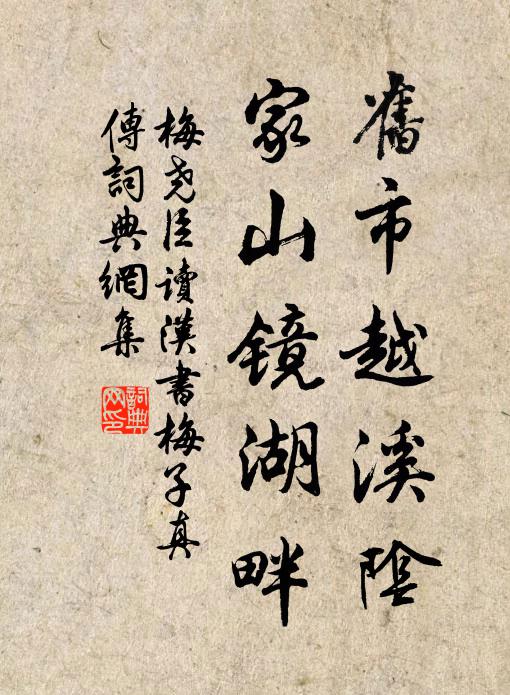 舊市越溪陰
家山鏡湖畔
梅堯臣讀漢書梅子真
傳詞典網集
詞典网印